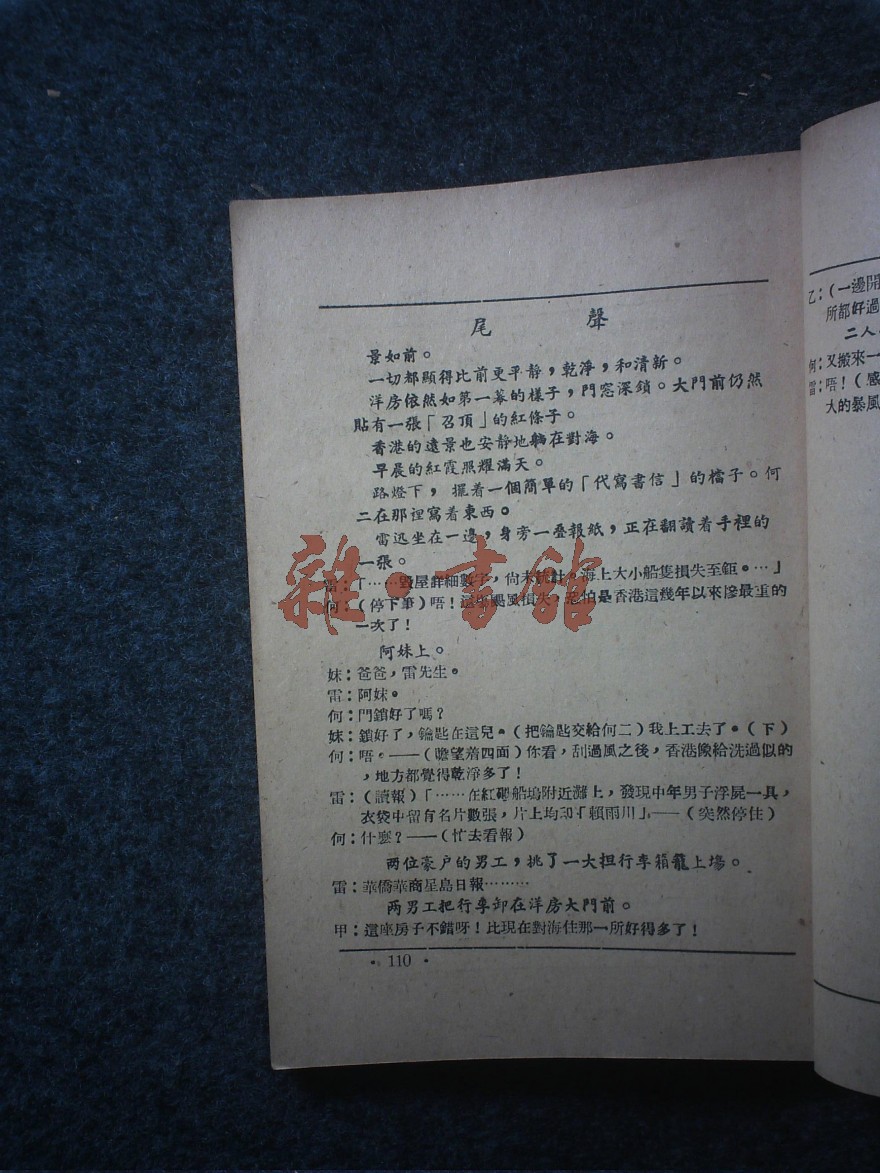 尾聲
景如前。
一切都顯得比前更平靜，乾淨，和清新。
洋房依然如第一幕的樣子，門窓深鎖。大門前仍然
貼有一張「召頂」的紅條子。
香港的遠景也安靜地躺在對海。
早晨的紅霞照耀滿天。
路燈下，擺着一個簡單的「代寫書信」的檔子。何
二在那裡寫着東西。
雷迅坐在一邊，身旁一叠報紙，正在翻讀着手裡的
一張。
雷：「……毀屋詳細數字，尚未統計。海上大小船隻損失至鉅。…」
何：（停下筆）唔！這塲颶風損失，恐怕是香港這幾年以來慘最重的
一次了！
阿妹上。
妹：爸爸，雷先生。
雷：阿妹。
何：門鎖好了嗎？
妹：鎖好了，鑰匙在這兒。（把鑰匙交給何二）我上工去了。（下）
何：唔。——（瞻望着四面）你看，刮過風之後，香港像給洗過似的
，地方都覺得乾淨多了！
雷：（讀報）「……在紅磡船塢附近灘上，發現中年男子浮屍一具，
衣袋中留有名片數張，片上均印「賴雨川」」——（突然停住）
何：什麼？——（忙去看報）
两位豪户的男工，挑了一大担行李箱籠上塲。
雷：華僑華商星島日報………
两男工把行李卸在洋房大門前。
甲：這座房子不錯呀！比現在對海住那一所好得多了！
·110·
乙：（一邊開
所都好過
二人
何：又搬來一
雷：唔！（感
大的暴風
雜·書館